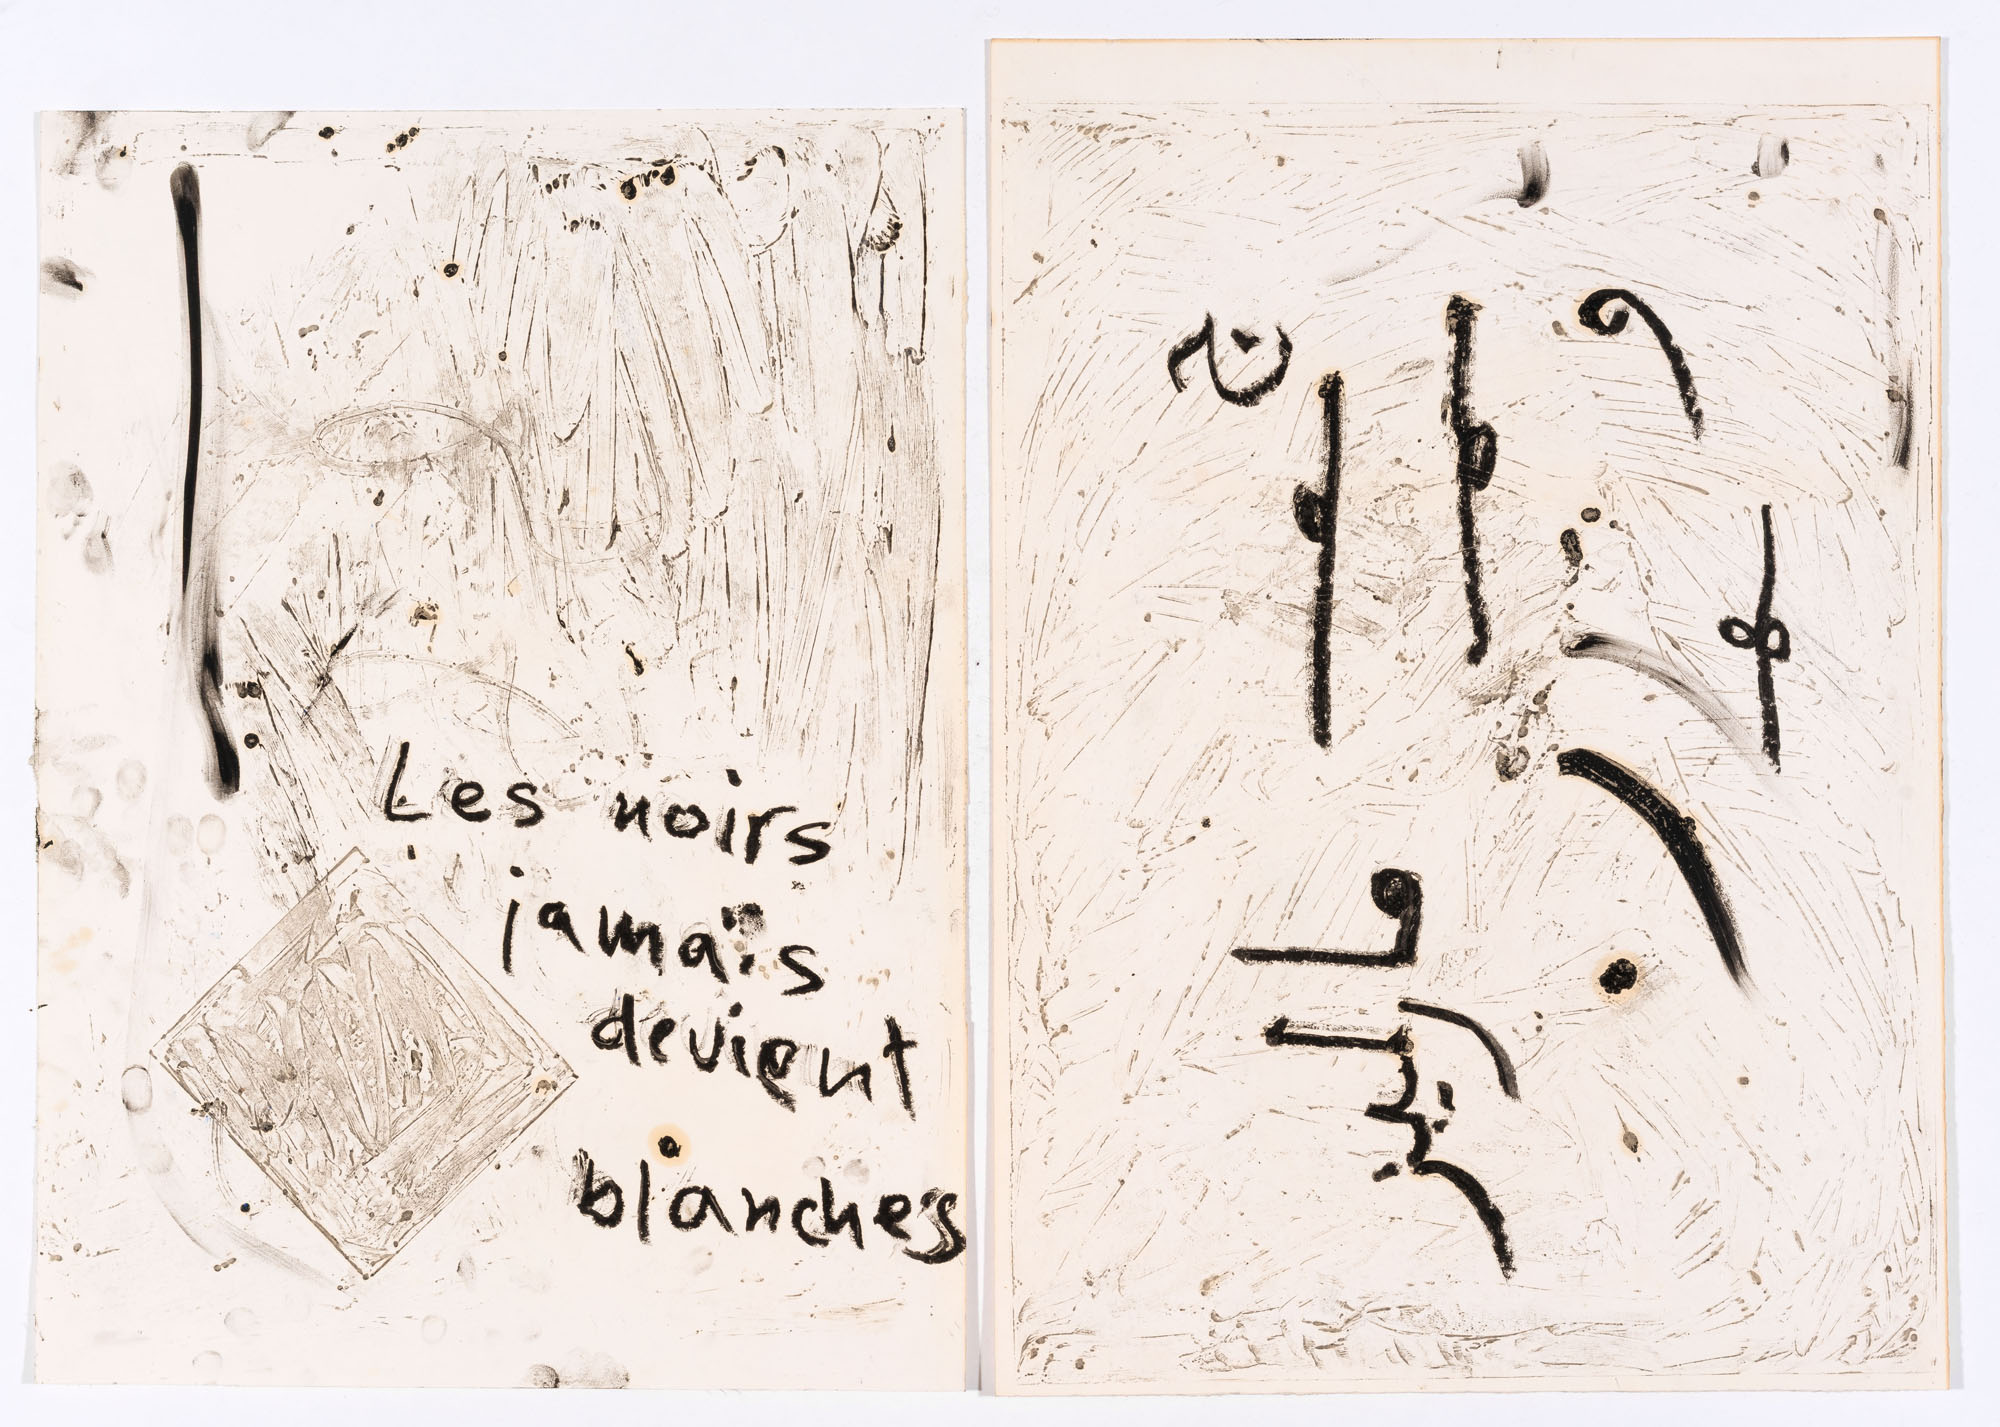 Les noirs
jamais
devient
blanches